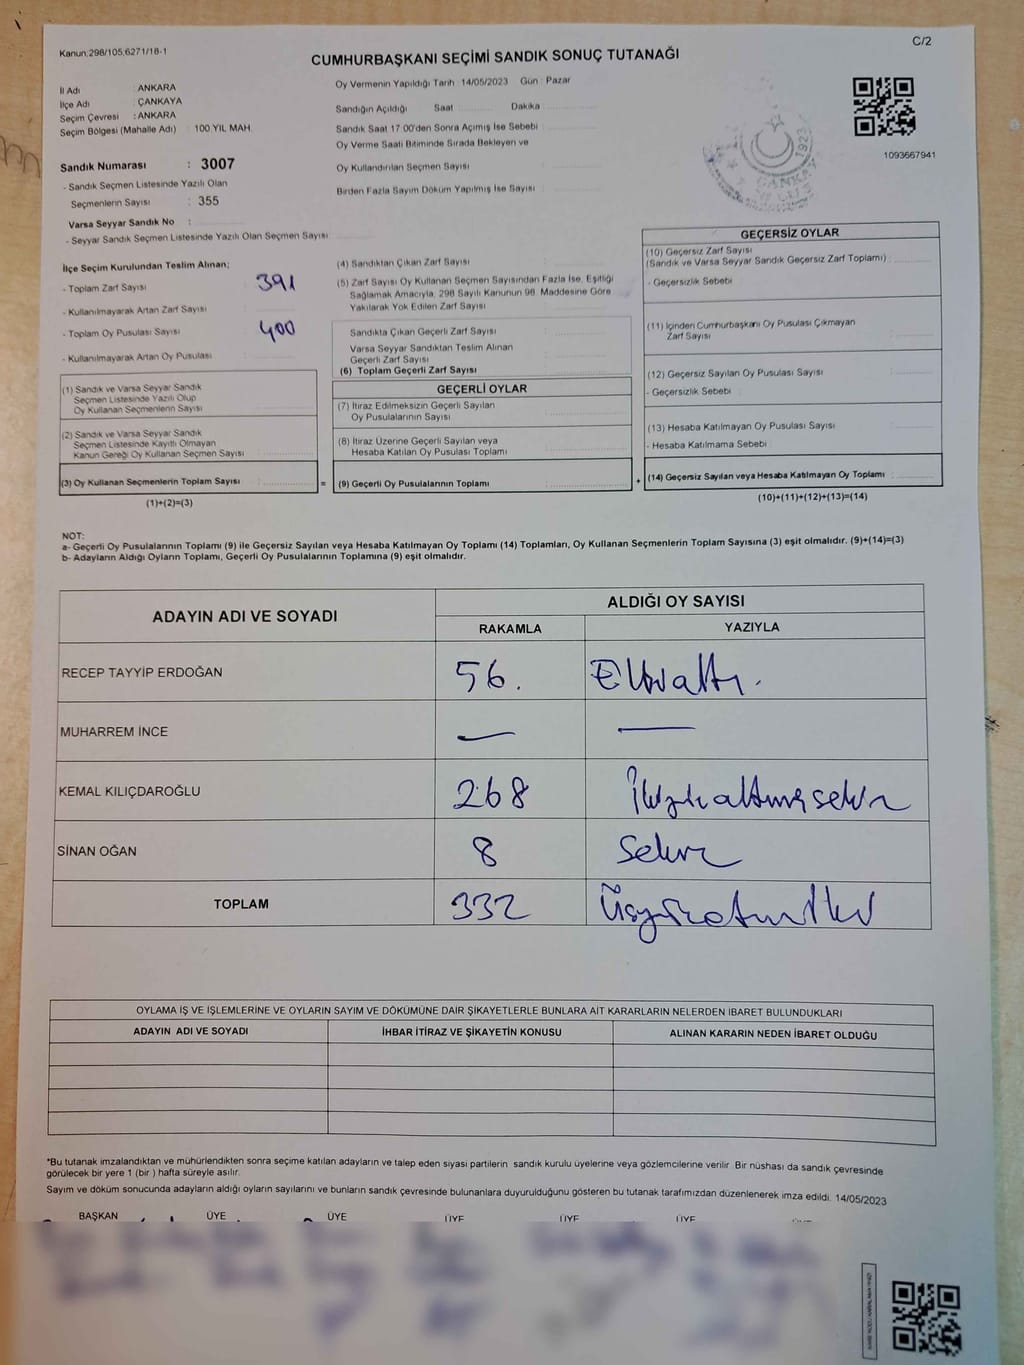 Kanun:298/105,6271/16-1
C/2
CUMHURBAŞKANI SEÇİMİ SANDIK SONUÇ TUTANAĞI
İl Adı : ANKARA
İlçe Adı : ÇANKAYA
Seçim Çevresi : ANKARA
Seçim Bölgesi (Mahalle Adı) : 100 YIL MAH.
Sandık Numarası : 3007
- Sandık Seçmen Listesinde Yazılı Olan
Seçmenlerin Sayısı : 355
Varsa Seyyar Sandık No :
- Seyyar Sandık Seçmen Listesinde Yazılı Olan Seçmen Sayısı
Oy Vermenin Yapıldığı Tarih : 14/05/2023 Gün : Pazar
Sandığın Açıldığı Saat Dakika
Sandık Saat 17.00'den Sonra Açımış İse Sebebi :
Oy Verme Saati Bitiminde Sırada Bekleyen ve
Oy Kullandırılan Seçmen Sayısı
Birden Fazla Sayım Döküm Yapılmış İse Sayısı
1923
1093667941
İlçe Seçim Kurulundan Teslim Alınan;
- Toplam Zarf Sayısı : 391
- Kullanılmayarak Artan Zarf Sayısı :
- Toplam Oy Pusulası Sayısı : 400
- Kullanılmayarak Artan Oy Pusulası :
(1) Sandık ve Varsa Seyyar Sandık
Seçmen Listesinde Yazılı Olup
Oy Kullanan Seçmenlerin Sayısı
(2) Sandık ve Varsa Seyyar Sandık
Seçmen Listesinde Kayıtlı Olmayan
Kanun Gereği Oy Kullanan Seçmen Sayısı
(3) Oy Kullanan Seçmenlerin Toplam Sayısı :
(1)+(2)=(3)
=
(4) Sandıktan Çıkan Zarf Sayısı
(5) Zarf Sayısı Oy Kullanan Seçmen Sayısından Fazla İse, Eşitliği
Sağlamak Amacıyla, 298 Sayılı Kanunun 98. Maddesine Göre
Yakılarak Yok Edilen Zarf Sayısı
Sandıkta Çıkan Geçerli Zarf Sayısı
Varsa Seyyar Sandıktan Teslim Alınan
Geçerli Zarf Sayısı
(6) Toplam Geçerli Zarf Sayısı
GEÇERLİ OYLAR
(7) İtiraz Edilmeksizin Geçerli Sayılan
Oy Pusulalarının Sayısı
(8) İtiraz Üzerine Geçerli Sayılan veya
Hesaba Katılan Oy Pusulası Toplamı
(9) Geçerli Oy Pusulalarının Toplamı
+
GEÇERSİZ OYLAR
(10) Geçersiz Zarf Sayısı
(Sandık ve Varsa Seyyar Sandık Geçersiz Zarf Toplamı) :
- Geçersizlik Sebebi
(11) İçinden Cumhurbaşkanı Oy Pusulası Çıkmayan
Zarf Sayısı
(12) Geçersiz Sayılan Oy Pusulası Sayısı
- Geçersizlik Sebebi
(13) Hesaba Katılmayan Oy Pusulası Sayısı
- Hesaba Katılmama Sebebi
(14) Geçersiz Sayılan veya Hesaba Katılmayan Oy Toplamı :
(10)+(11)+(12)+(13)=(14)
NOT:
a- Geçerli Oy Pusulalarının Toplamı (9) ile Geçersiz Sayılan veya Hesaba Katılmayan Oy Toplamı (14) Toplamları, Oy Kullanan Seçmenlerin Toplam Sayısına (3) eşit olmalıdır. (9)+(14)=(3)
b- Adayların Aldığı Oyların Toplamı, Geçerli Oy Pusulalarının Toplamına (9) eşit olmalıdır.
ADAYIN ADI VE SOYADI
ALDIĞI OY SAYISI
RAKAMLA YAZIYLA
RECEP TAYYİP ERDOĞAN 56. Ellialtı.
MUHARREM İNCE — —
KEMAL KILIÇDAROĞLU 268 İkiyüzaltmışsekiz
SİNAN OĞAN 8 Sekiz
TOPLAM 332 Üçyüzotuziki
OYLAMA İŞ VE İŞLEMLERİNE VE OYLARIN SAYIM VE DÖKÜMÜNE DAİR ŞİKAYETLERLE BUNLARA AİT KARARLARIN NELERDEN İBARET BULUNDUKLARI
ADAYIN ADI VE SOYADI İHBAR İTİRAZ VE ŞİKAYETİN KONUSU ALINAN KARARIN NEDEN İBARET OLDUĞU
*Bu tutanak imzalandıktan ve mühürlendikten sonra seçime katılan adayların ve talep eden siyasi partilerin sandık kurulu üyelerine veya gözlemcilerine verilir. Bir nüshası da sandık çevresinde
görülecek bir yere 1 (bir ) hafta süreyle asılır.
Sayım ve döküm sonucunda adayların aldığı oyların sayılarını ve bunların sandık çevresinde bulunanlara duyurulduğunu gösteren bu tutanak tarafımızdan düzenlenerek imza edildi. 14/05/2023
BAŞKAN ÜYE ÜYE ÜYE ÜYE ÜYE